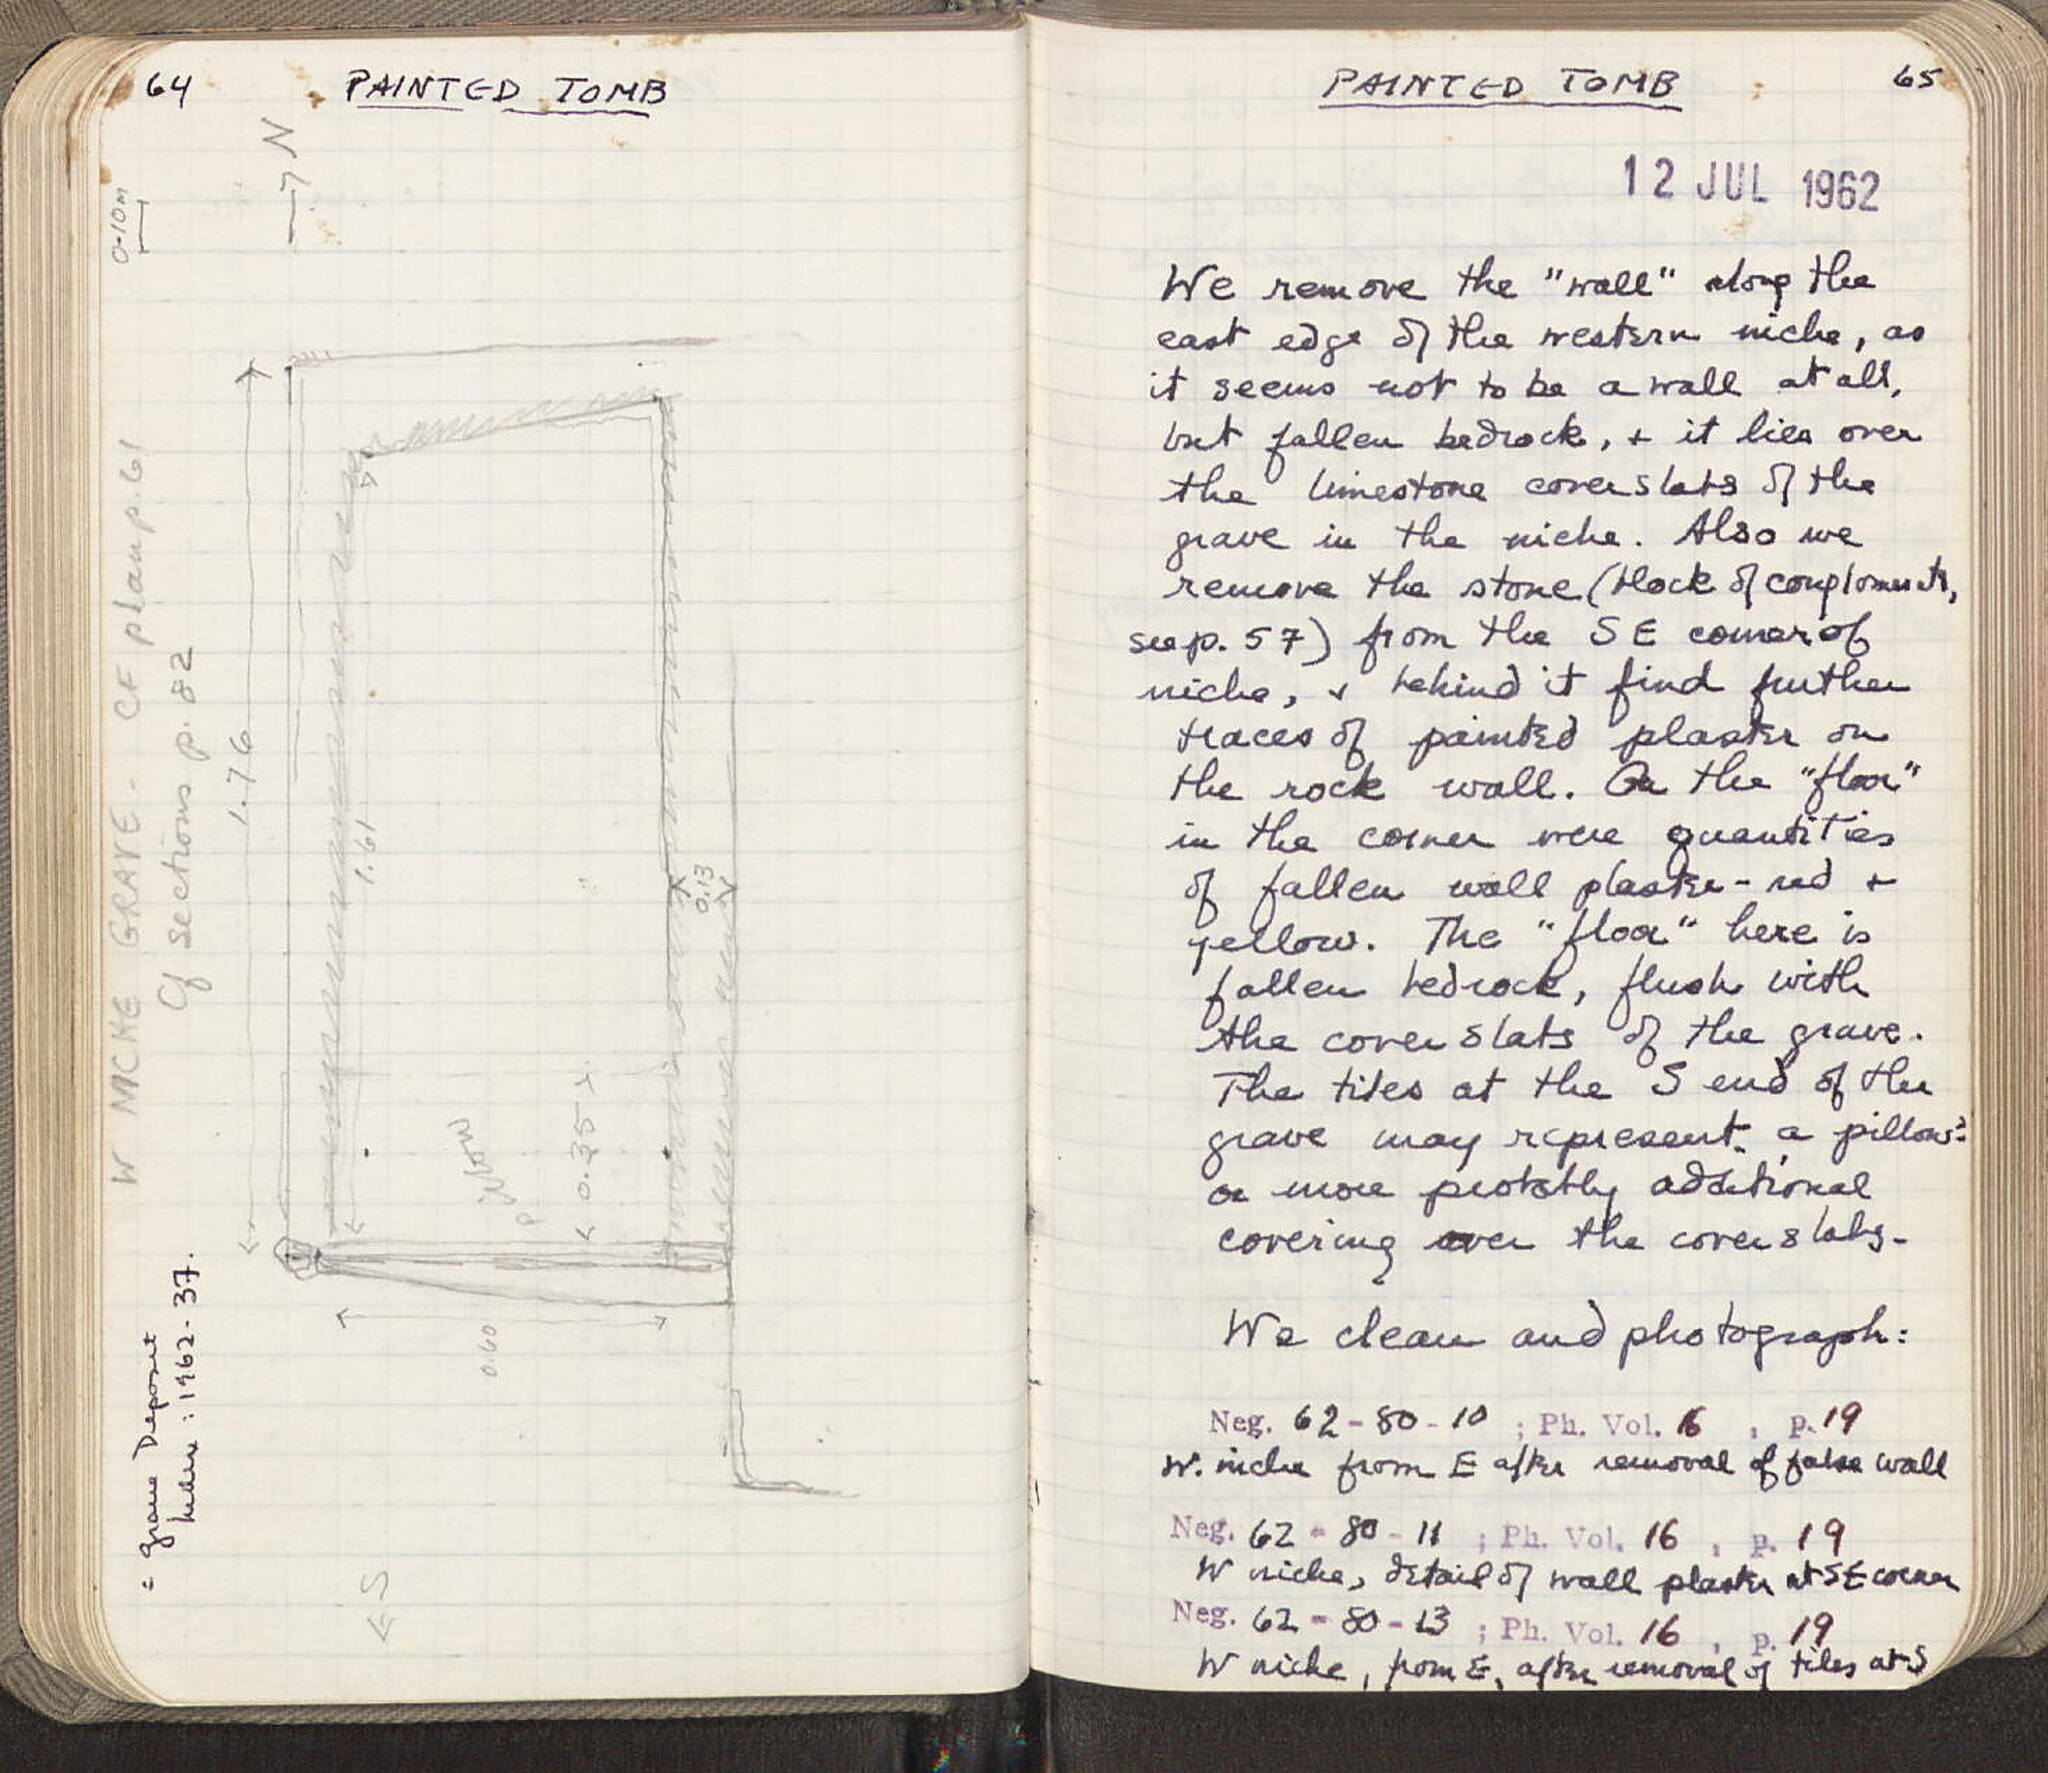 64
PAINTED TOMB
N
0.10m
W NICHE GRAVE - CF plan p. 61
Cf sections p. 82
1.76
1.61
0.13
0.35
Pillow
0.60
= Grave Deposit
number: 1962-37.
S
PAINTED TOMB
65
12 JUL 1962
We remove the "wall" along the
east edge of the western niche, as
it seems not to be a wall at all,
but fallen bedrock, + it lies over
the limestone coverslabs of the
grave in the niche. Also we
remove the stone (block of conglomerate,
see p. 57) from the SE corner of
niche, + behind it find further
traces of painted plaster on
the rock wall. On the "floor"
in the corner were quantities
of fallen wall plaster - red +
yellow. The "floor" here is
fallen bedrock, flush with
the cover slabs of the grave.
The tiles at the S end of the
grave may represent a pillow:
or more probably additional
covering over the cover slabs.
We clean and photograph:
Neg. 62-80-10 ; Ph. Vol. 16 , p. 19
W. niche from E after removal of false wall
Neg. 62-80-11 ; Ph. Vol. 16 , p. 19
W niche, detail of wall plaster at SE corner
Neg. 62-80-13 ; Ph. Vol. 16 , p. 19
W niche, from E, after removal of tiles at S